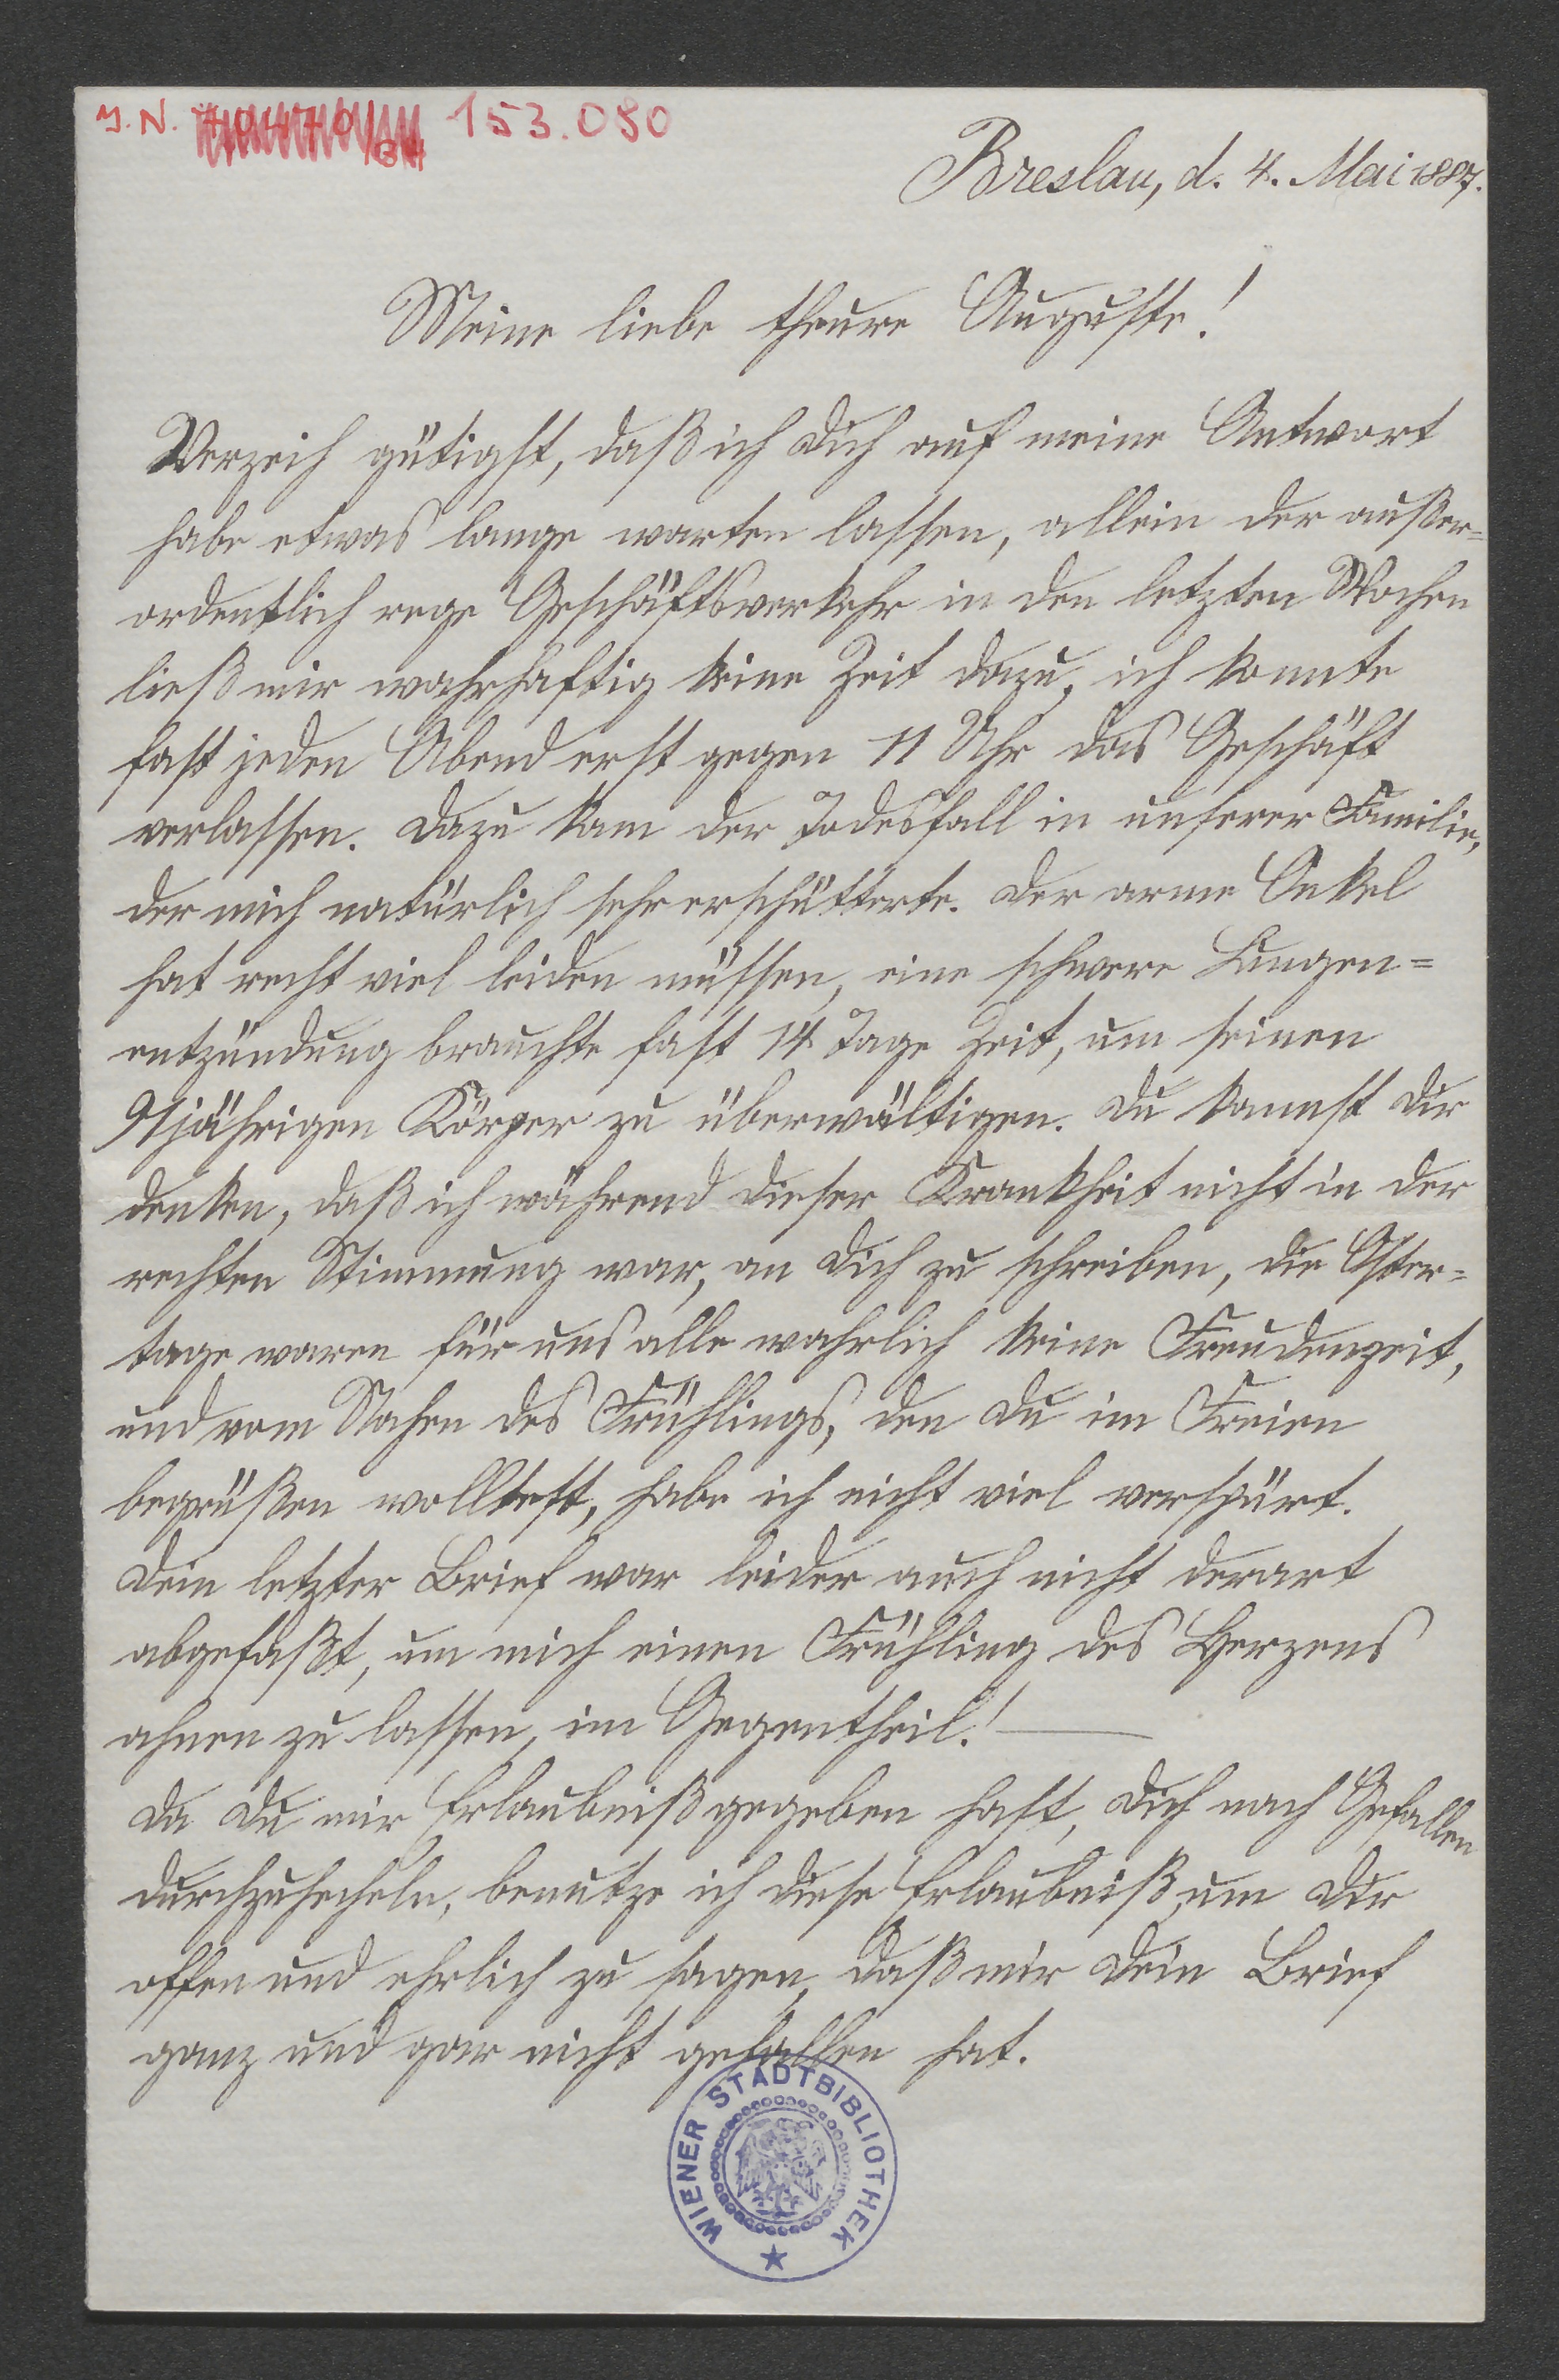 J.N. 153.080
Breslau, d. 4. Mai 1887.
Meine liebe theure Auguste!
Verzeih gütigst, daß ich Dich auf meine Antwort
habe etwas lange warten lassen, allein der außer=
ordentlich rege Geschäftsverkehr in den letzten Wochen
ließ mir wahrhaftig keine Zeit dazu, ich konnte
fast jeden Abend erst gegen 11 Uhr das Geschäft
verlassen. Dazu kam der Todesfall in unserer Familie,
der mich natürlich sehr erschütterte. Der arme Onkel
hat recht viel leiden müssen, eine schwere Lungen=
entzündung brauchte fast 14 Tage Zeit, um seinen
91jährigen Körper zu überwältigen. Du kannst Dir
denken, daß ich während dieser Krankheit nicht in der
rechten Stimmung war, an Dich zu schreiben, die Oster=
tage waren für uns alle wahrlich keine Freudenzeit,
und vom Nahen des Frühlings, den Du im Freien
begrüßen wolltest, habe ich nicht viel verspürt.
Dein letzter Brief war leider auch nicht derart
abgefaßt, um mich einen Frühling des Herzens
ahnen zu lassen, im Gegentheil! —
Da Du mir Erlaubniß gegeben hast, Dich nach Gefallen
durchzuhecheln, benutze ich diese Erlaubniß, um Dir
offen und ehrlich zu sagen, daß mir Dein Brief
ganz und gar nicht gefallen hat.
WIENER STADTBIBLIOTHEK